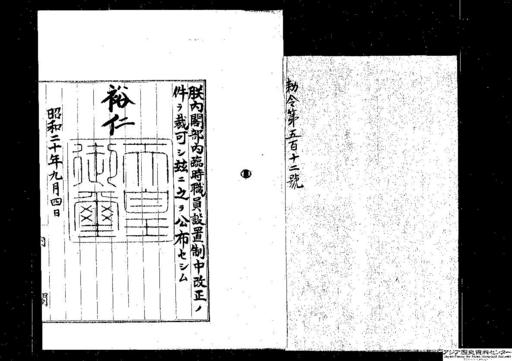 勅令第五百十二號
朕內閣部內臨時職員設置制中改正ノ
件ヲ裁可シ玆ニ之ヲ公布セシム
裕仁
天皇御璽
昭和二十年九月四日
內閣
アジア歴史資料センター
Japan Center for Asian Historical Records